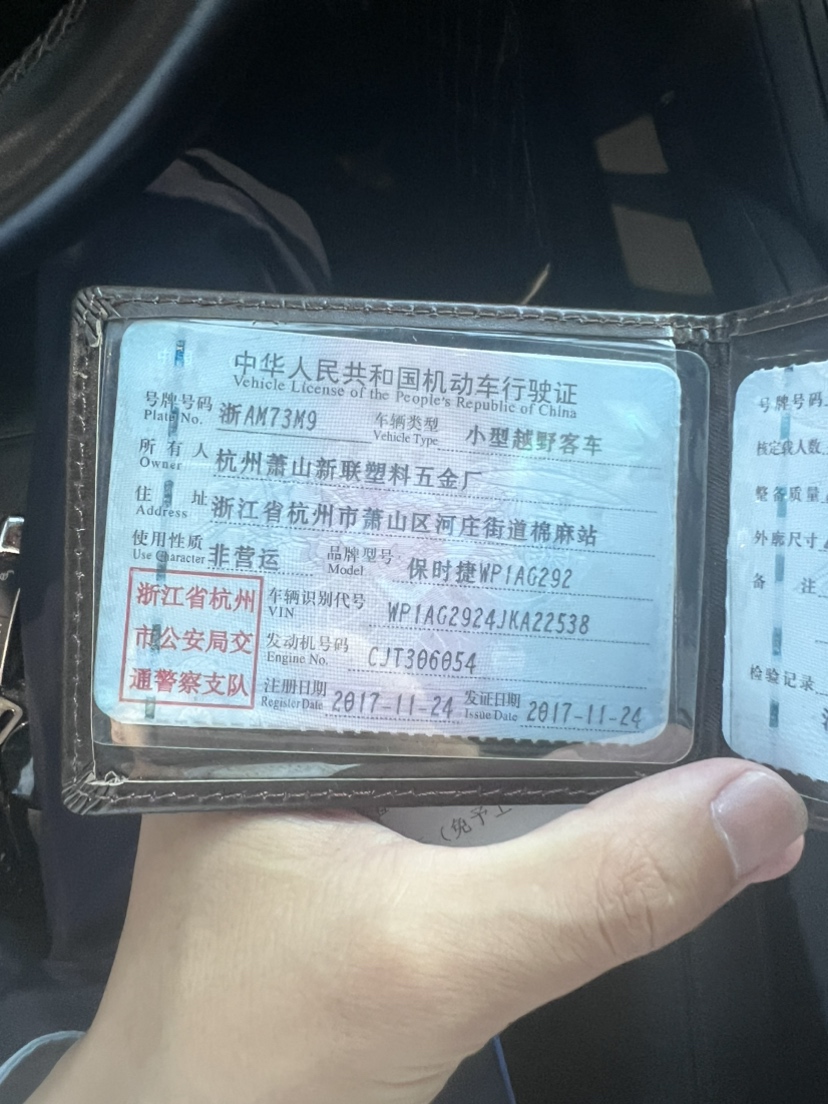 中华人民共和国机动车行驶证
Vehicle License of the People's Republic of China
号牌号码 浙AM73M9 车辆类型 小型越野客车
Plate No. Vehicle Type
所有人 杭州萧山新联塑料五金厂
Owner
住址 浙江省杭州市萧山区河庄街道棉麻站
Address
使用性质 非营运 品牌型号 保时捷WP1AG292
Use Character Model
浙江省杭州
市公安局交
通警察支队
车辆识别代号 WP1AG2924JKA22538
VIN
发动机号码 CJT306054
Engine No.
注册日期 2017-11-24 发证日期 2017-11-24
Register Date Issue Date
号牌号码
核定载人数
整备质量
外廓尺寸
备注
检验记录
(免予